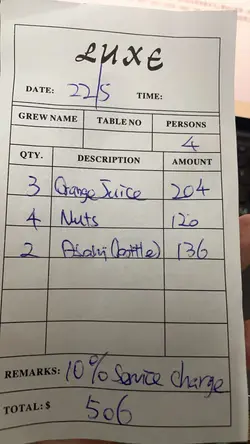 LUXE
DATE: 22/5 TIME:
GREW NAME TABLE NO PERSONS
4
QTY. DESCRIPTION AMOUNT
3 Orange Juice 204
4 Nuts 120
2 Asahi (bottle) 136
REMARKS: 10% Service charge
TOTAL: $ 506